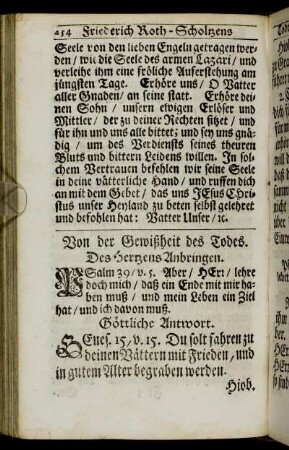 254 Friederich Roth-Scholtzens
Seele von den lieben Engeln getragen wer-
den / wie die Seele des armen Lazari / und
verleihe ihm eine fröliche Auferstehung am
jüngsten Tage. Erhöre uns / O Vatter
aller Gnaden / an seine statt. Erhöre dei-
nen Sohn / unsern ewigen Erlöser und
Mittler / der zu deiner Rechten sitzet / und
für ihn und uns alle bittet; und sey uns gnä-
dig / um des Verdiensts seines theuren
Bluts und bittern Leidens willen. In sol-
chem Vertrauen befehlen wir seine Seele
in deine vätterliche Hand / und ruffen dich
an mit dem Gebet / das uns JEsus Chri-
stus unser Heyland zu beten selbst gelehret
und befohlen hat: Vatter Unser / ꝛc.
Von der Gewißheit des Todes.
Des Hertzens Anbringen.
PSalm 39 / v. 5. Aber / HErr / lehre
doch mich / daß ein Ende mit mir ha-
ben muß / und mein Leben ein Ziel
hat / und ich davon muß.
Göttliche Antwort.
GEnes. 15, v. 15. Du solt fahren zu
deinen Vättern mit Frieden, und
in gutem Alter begraben werden.
Hiob.